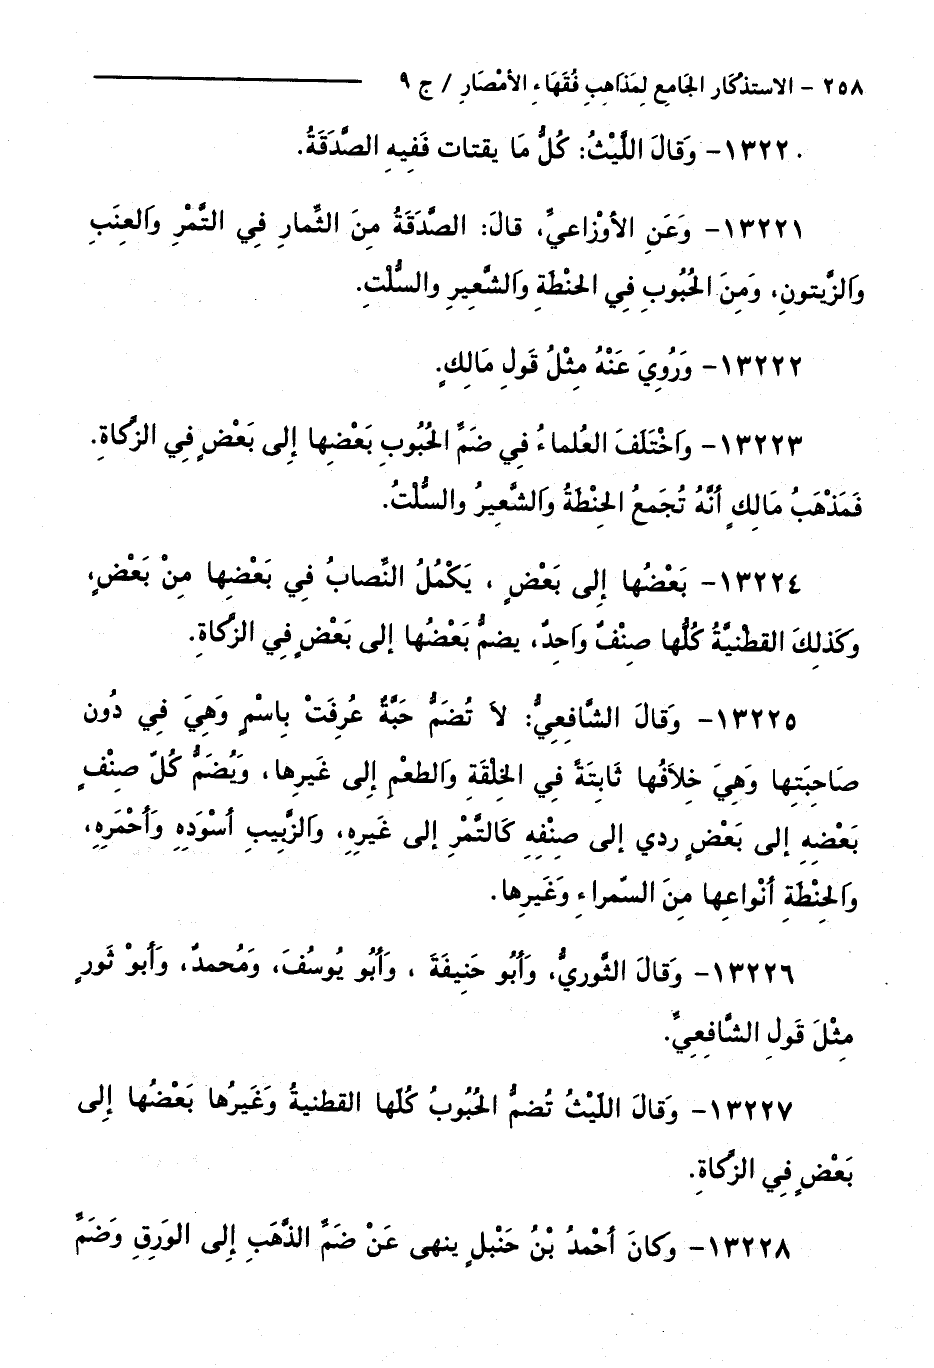 ٢٥٨ - الاستذْكَار الجَامِع لِمَذَاهِبِ فُقَهَاءِ الأمْصَارِ / ج ٩
١٣٢٢٠- وَقالَ اللَّيْثُ: كُلُّ مَا يقتات فَفِيهِ الصَّدَقَةُ.
١٣٢٢١- وَعَنِ الأوْزاعيِّ، قالَ: الصَّدَقَةُ مِنَ الثِّمارِ فِي التَّمْرِ والعِنَبِ
والزَّيتونِ، وَمِنَ الحُبُوبِ فِي الحنْطَةِ والشَّعِيرِ والسُّلْتِ.
١٣٢٢٢- وَرُوِيَ عَنْهُ مِثْلُ قَولِ مَالِكٍ.
١٣٢٢٣- واخْتَلَفَ العُلماءُ فِي ضَمِّ الحُبُوبِ بَعْضِها إلى بَعْضٍ فِي الزكاةِ.
فَمَذْهَبُ مَالِكٍ أنَّهُ تُجَمعُ الحِنْطَةُ والشَّعِيرُ والسُّلْتُ.
١٣٢٢٤- بَعْضُها إلى بَعْضٍ ، يَكْمُلُ النِّصابُ فِي بَعْضِها مِنْ بَعْضٍ،
وكَذلِكَ القطْنيَّةُ كُلُّها صِنْفٌ واحِدٌ، يضمُّ بَعْضُها إلى بَعْضٍ فِي الزَّكاةِ.
١٣٢٢٥- وَقالَ الشَّافِعِيُّ: لاَ تُضَمُّ حَبَّةٌ عُرِفَتْ بِاسْمٍ وَهِيَ فِي دُونِ
صَاحِبَتِها وَهِيَ خِلاَفُها ثَابتَةً فِي الخِلْقَةِ والطعْمِ إِلى غَيرِها، وَيُضَمُّ كُلّ صِنْفٍ
بَعْضه إلى بَعْضٍ ردي إلى صنْفِهِ كَالتَّمْرِ إلى غَيرِهِ، والزَّبِيبِ أسْوَدِهِ وَأَحْمَرِهِ،
والحِنْطَةِ أنْواعِها مِنَ السّمراءِ وَغَيرِها.
١٣٢٢٦- وَقالَ الثَّوريُّ، وَأَبُو حَنِيفَةَ ، وَأَبُو يُوسُفَ، وَمُحمدٌ، وَأَبوْ ثَورٍ
مِثْلَ قَولِ الشَّافِعِيِّ.
١٣٢٢٧- وَقالَ اللّيْثُ تُضمُّ الحُبُوبُ كُلّها القطنيةُ وَغَيرُها بَعْضُها إلى
بَعْضٍ فِي الزكاةِ.
١٣٢٢٨- وكانَ أَحْمدُ بْنُ حَنْبلٍ ينهى عَنْ ضَمِّ الذَّهَبِ إِلى الوَرِقِ وضَمِّ